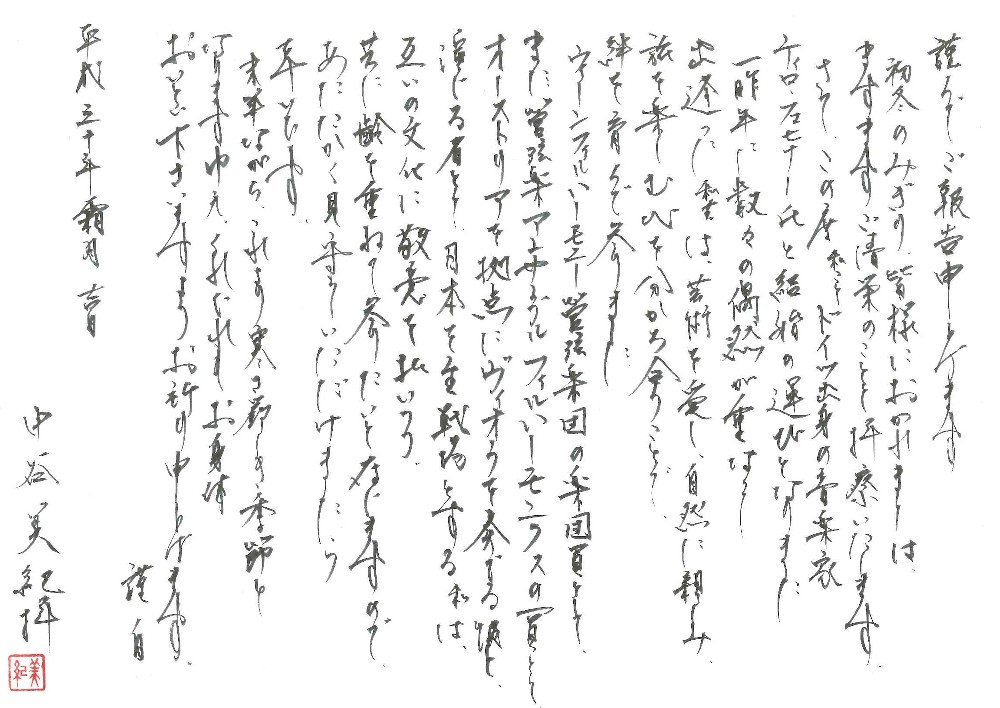 謹んでご報告申し上げます
初冬のみぎり、皆様におかれましては、
ますますご清栄のことと拝察いたします。
さて、この度私こと、ドイツ出身の音楽家
ティロ・フェヒナー氏と結婚の運びとなりました。
一昨年に数々の偶然が重なって
出逢った私共は、芸術を愛し、自然に親しみ、
旅を楽しむ心を分かち合うことで、
絆を育んで参りました。
ウィーンフィルハーモニー管弦楽団の楽団員として、
また、管弦楽アンサンブル フィルハーモニクスの一員として
オーストリアを拠点にヴィオラを奏する彼と、
演じる者として日本を主戦場とする私は、
互いの文化に敬意を払いつつ、
共に齢を重ねて参りたいと存じますので、
あたたかく見守っていただけましたら
幸いです。
末筆ながら、これより寒さ厳しき季節と
なります故、くれぐれもお身体
おいとい下さいますようお祈り申し上げます。
謹白
平成三十年霜月吉日
中谷美紀拝
美紀